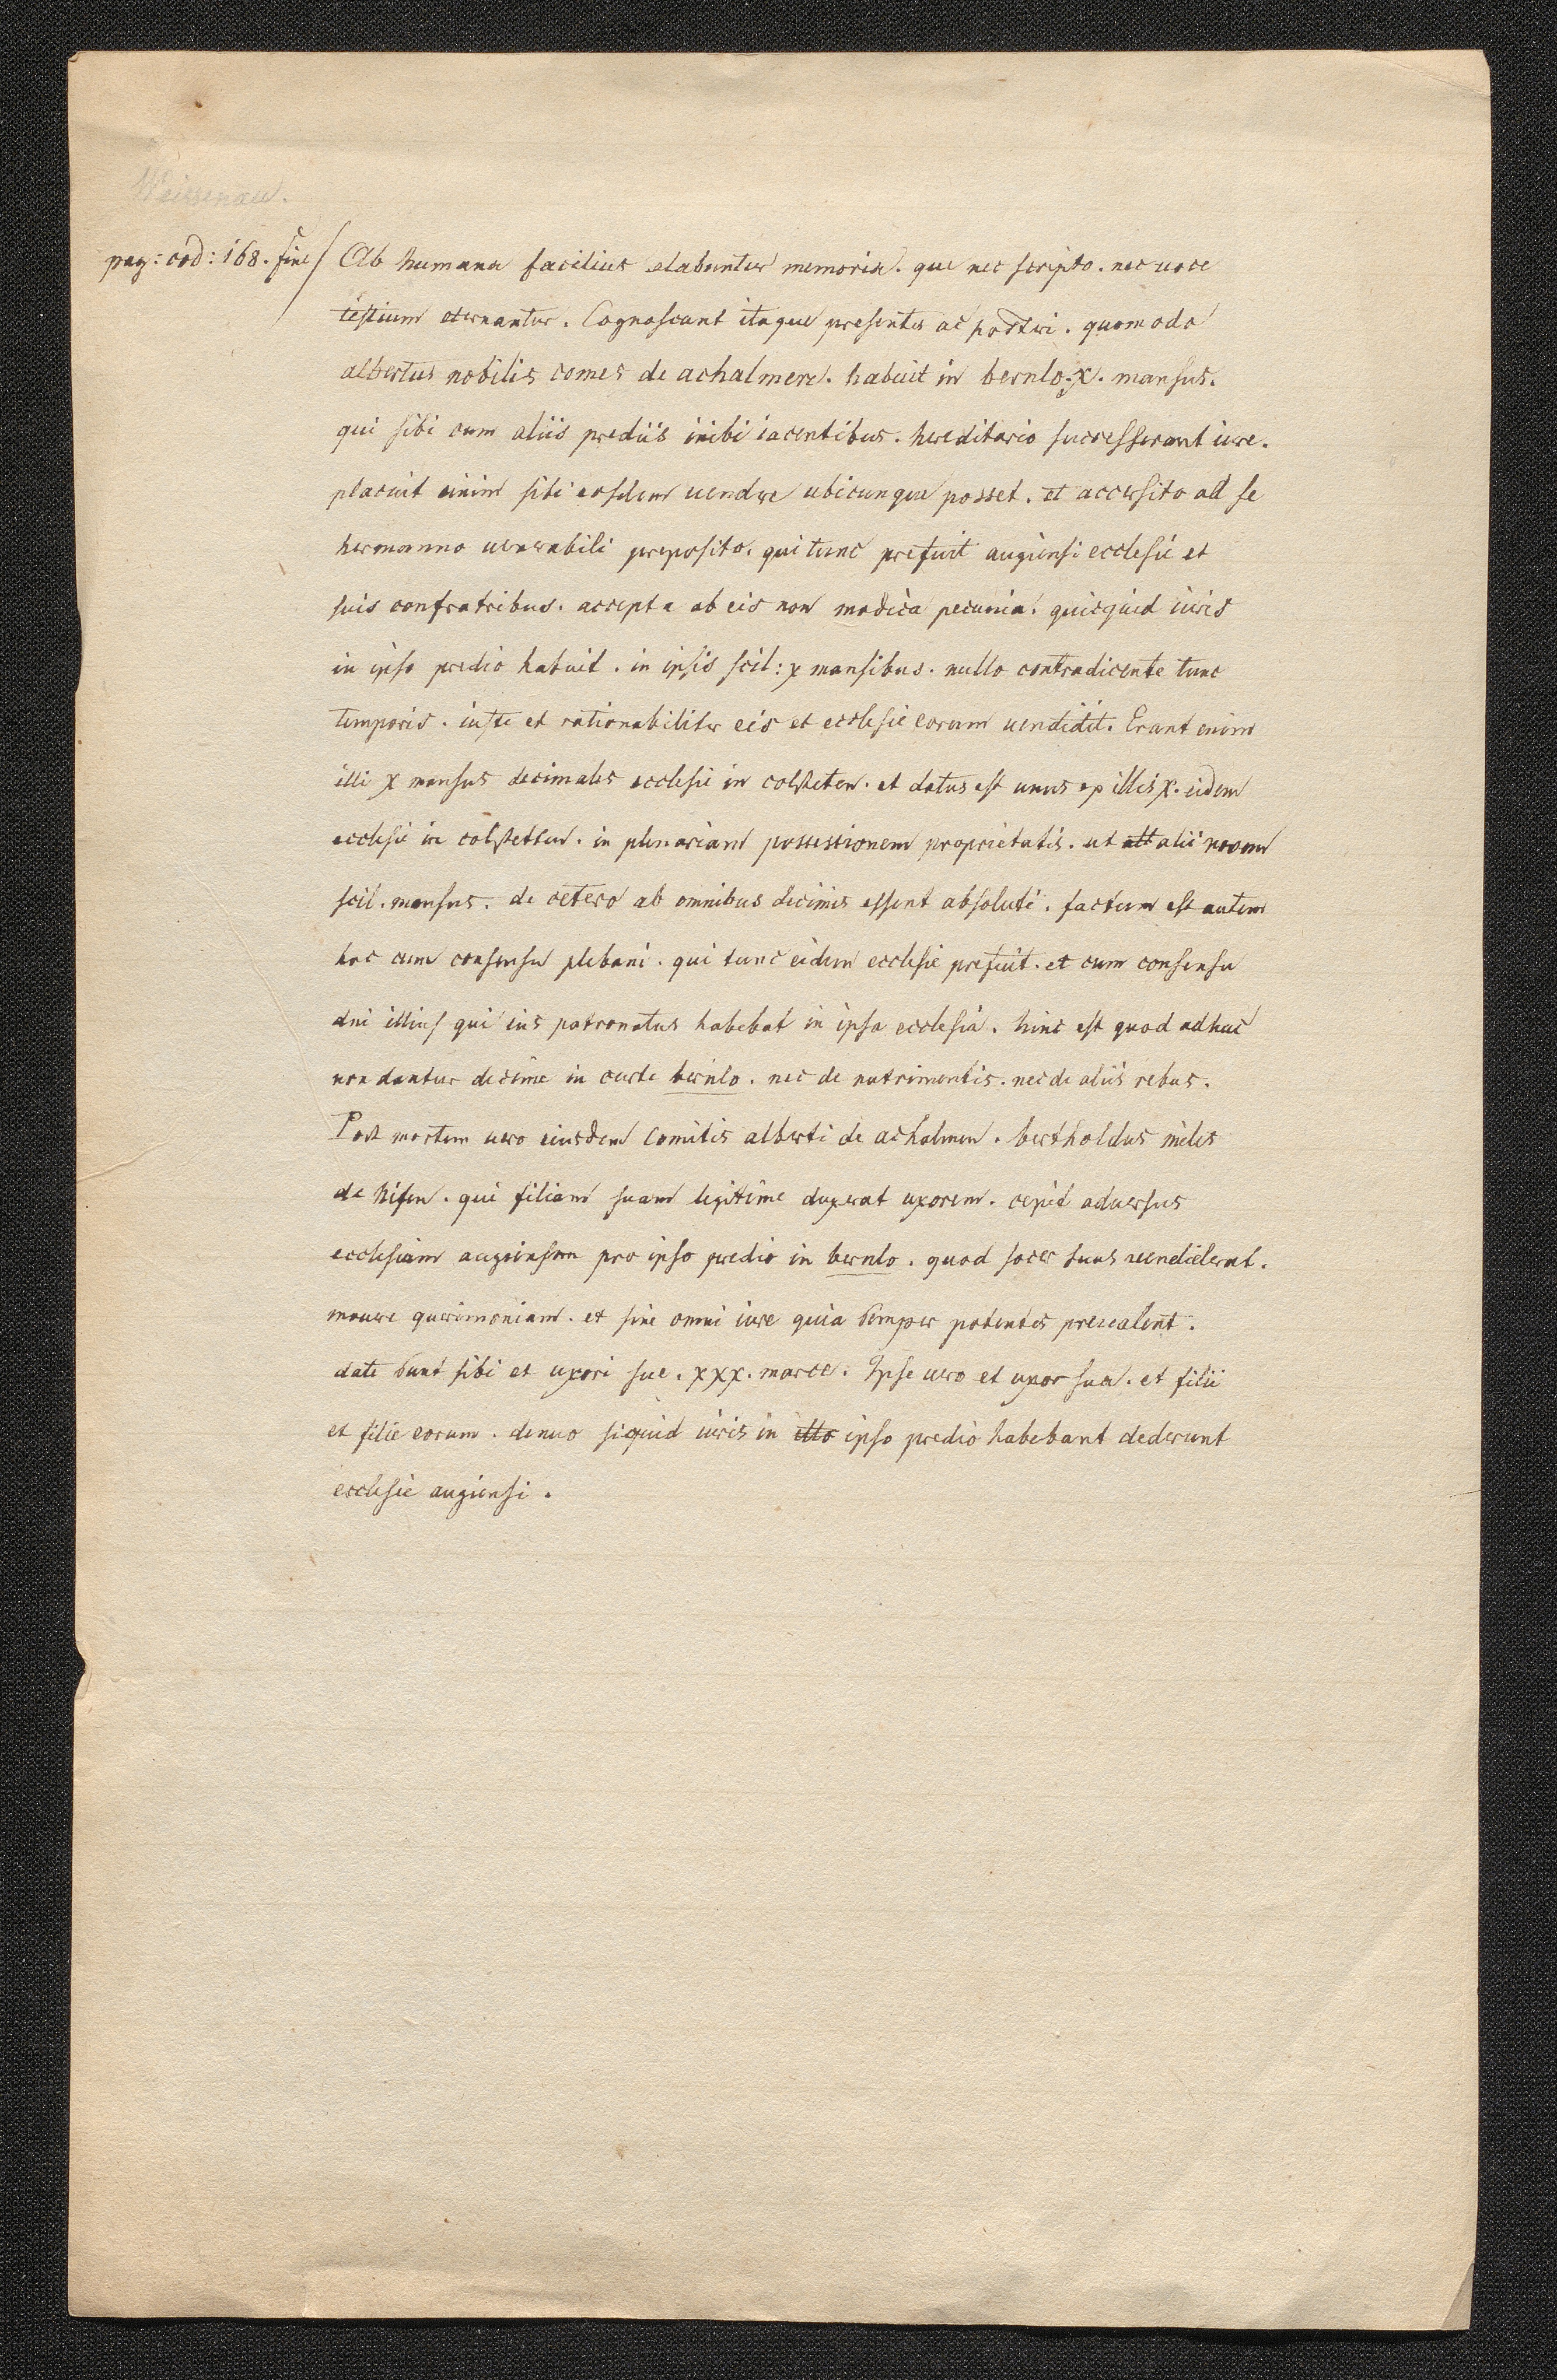 Weissenau.
pag: cod: 168. fine / Ab humana facilius elabuntur memoria. que nec scripto. nec uoce
testium eternantur. Cognoscant itaque presentes ac posteri. quomodo
albertus nobilis comes de achalmen. habuit in bernlo. x. mansus.
qui sibi cum aliis prediis inibi iacentibus. hereditario successerant iure.
placuit enim sibi eosdem uendere ubicunque posset. et accersito ad se
hermanno uenerabili preposito. qui tunc prefuit augiensi ecclesie et
suis confratribus. accepta ab eis non modica pecunia. quicquid iuris
in ipso predio habuit. in ipsis scil: x mansibus. nullo contradicente tunc
temporis. iuste et rationabiliter eis et ecclesie eorum uendidit. Erant enim
illi x mansus decimales ecclesie in colsteten. et datus est unus ex illis x. eidem
ecclesie in colstetten. in plenariam possessionem proprietatis. ut alt alii nouem
scil. mansus. de cetero ab omnibus decimis essent absoluti. factum est autem
hoc cum consensu plebani. qui tunc eidem ecclesie prefuit. et cum consensu
dni illius qui ius patronatus habebat in ipsa ecclesia. hinc est quod adhuc
non dantur decime in curte bernlo. nec de nutrimentis. nec de aliis rebus.
Post mortem uero eiusdem comitis alberti de achalmen. bertholdus miles
de nifen. qui filiam suam legitime duxerat uxorem. cepit aduersus
ecclesiam augiensem pro ipso predio in bernlo. quod socer suus uendiderat.
mouere querimoniam. et sine omni iure quia semper potentes preualent.
date sunt sibi et uxori sue. xxx. marce. Ipse uero et uxor sua. et filii
et filie eorum. denuo siquid iuris in illo ipso predio habebant dederunt
ecclesie augiensi.